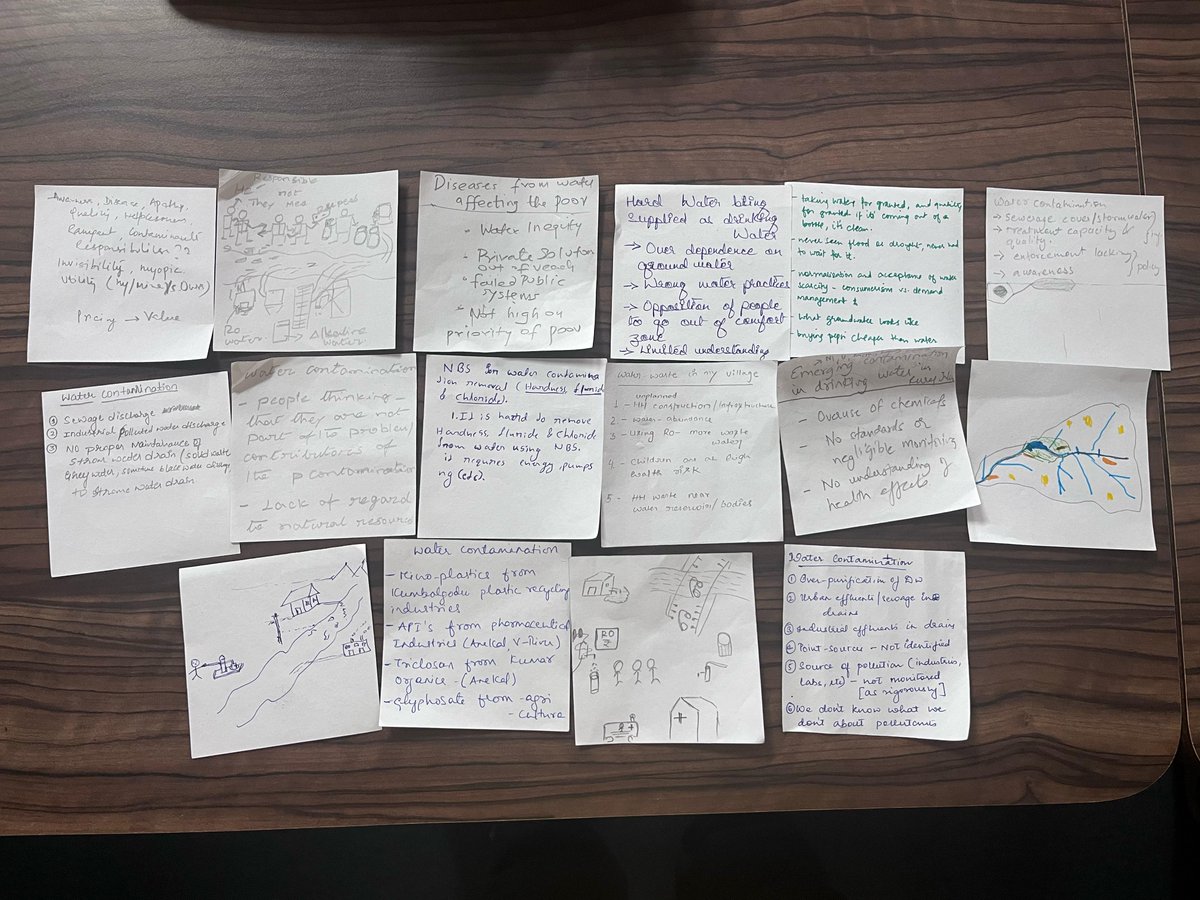 Awareness, Disease, Apathy,
Quality, Helplessness,
Rampant Contaminants
Responsibilities ??
Invisibility, myopic,
Utility
Pricing → Value
Responsible
not
They Me
RO
water.
Alkaline
water.
Diseases from water
affecting the poor
- Water Inequity
- Private Solution
out of reach
- failed Public
systems
- Not high on
priority of poor
Hard Water being
supplied as drinking
Water
→ Over dependence on
ground water
→ Wrong water practices
→ Opposition of people
to go out of comfort
zone
→ Limited understanding
- taking water for granted, and quality
for granted if it's coming out of a
bottle, it's clean.
- never seen flood or drought, never had
to wait for it.
- normalisation and acceptance of water
scarcity - consumerism vs. demand
management
- what groundwater looks like
- buying pepsi cheaper than water
Water contamination
→ sewerage cover/stormwater
→ treatment capacity &
quality.
→ enforcement lacking
→ awareness
policy
Water Contamination
① Sewage discharge
② Industrial polluted water discharge
③ No proper maintainance of
strom water drain (solid waste
Grey water, sometime black water discharge
to strome water drain
Water contamination
- people thinking
that they are not
part of the problem/
contributors of
the contamination
- Lack of regard
to natural resource
NBS for water contamina
tion removal (Hardness, fluride
& chloride).
1. It is hard to remove
Hardness, fluride & chloride
from water using NBS.
it requries energy pumps
ng (etc).
Water-waste in my village
unplanned
1 - HH construction/infrastructure
2 - water-abundance
3 - Using RO - more waste
water
4 - children are at high
health risk
5 - HH waste near
water reservoir/bodies
Emerging contamination
in drinking water in
- Overuse of chemicals
- No standards or
negligible monitoring
- No understanding of
health effects
water contamination
- Micro-plastics from
Kumbalgodu plastic recycling
industries
- API's from pharmaceutical
Industries (Anekal, V-River)
- Triclosan from Kumar
Organics - (Anekal)
- Glyphosate from - agri
- culture
RO
Water Contamination
① Over-purification of DW
② Urban effluents/sewage in
drains
③ Industrial effluents in drains
④ Point-sources - Not Identified
⑤ Source of pollution (industries,
Labs, etc) - not monitored
[as rigorously]
⑥ We don't know what we
don't about pollutants